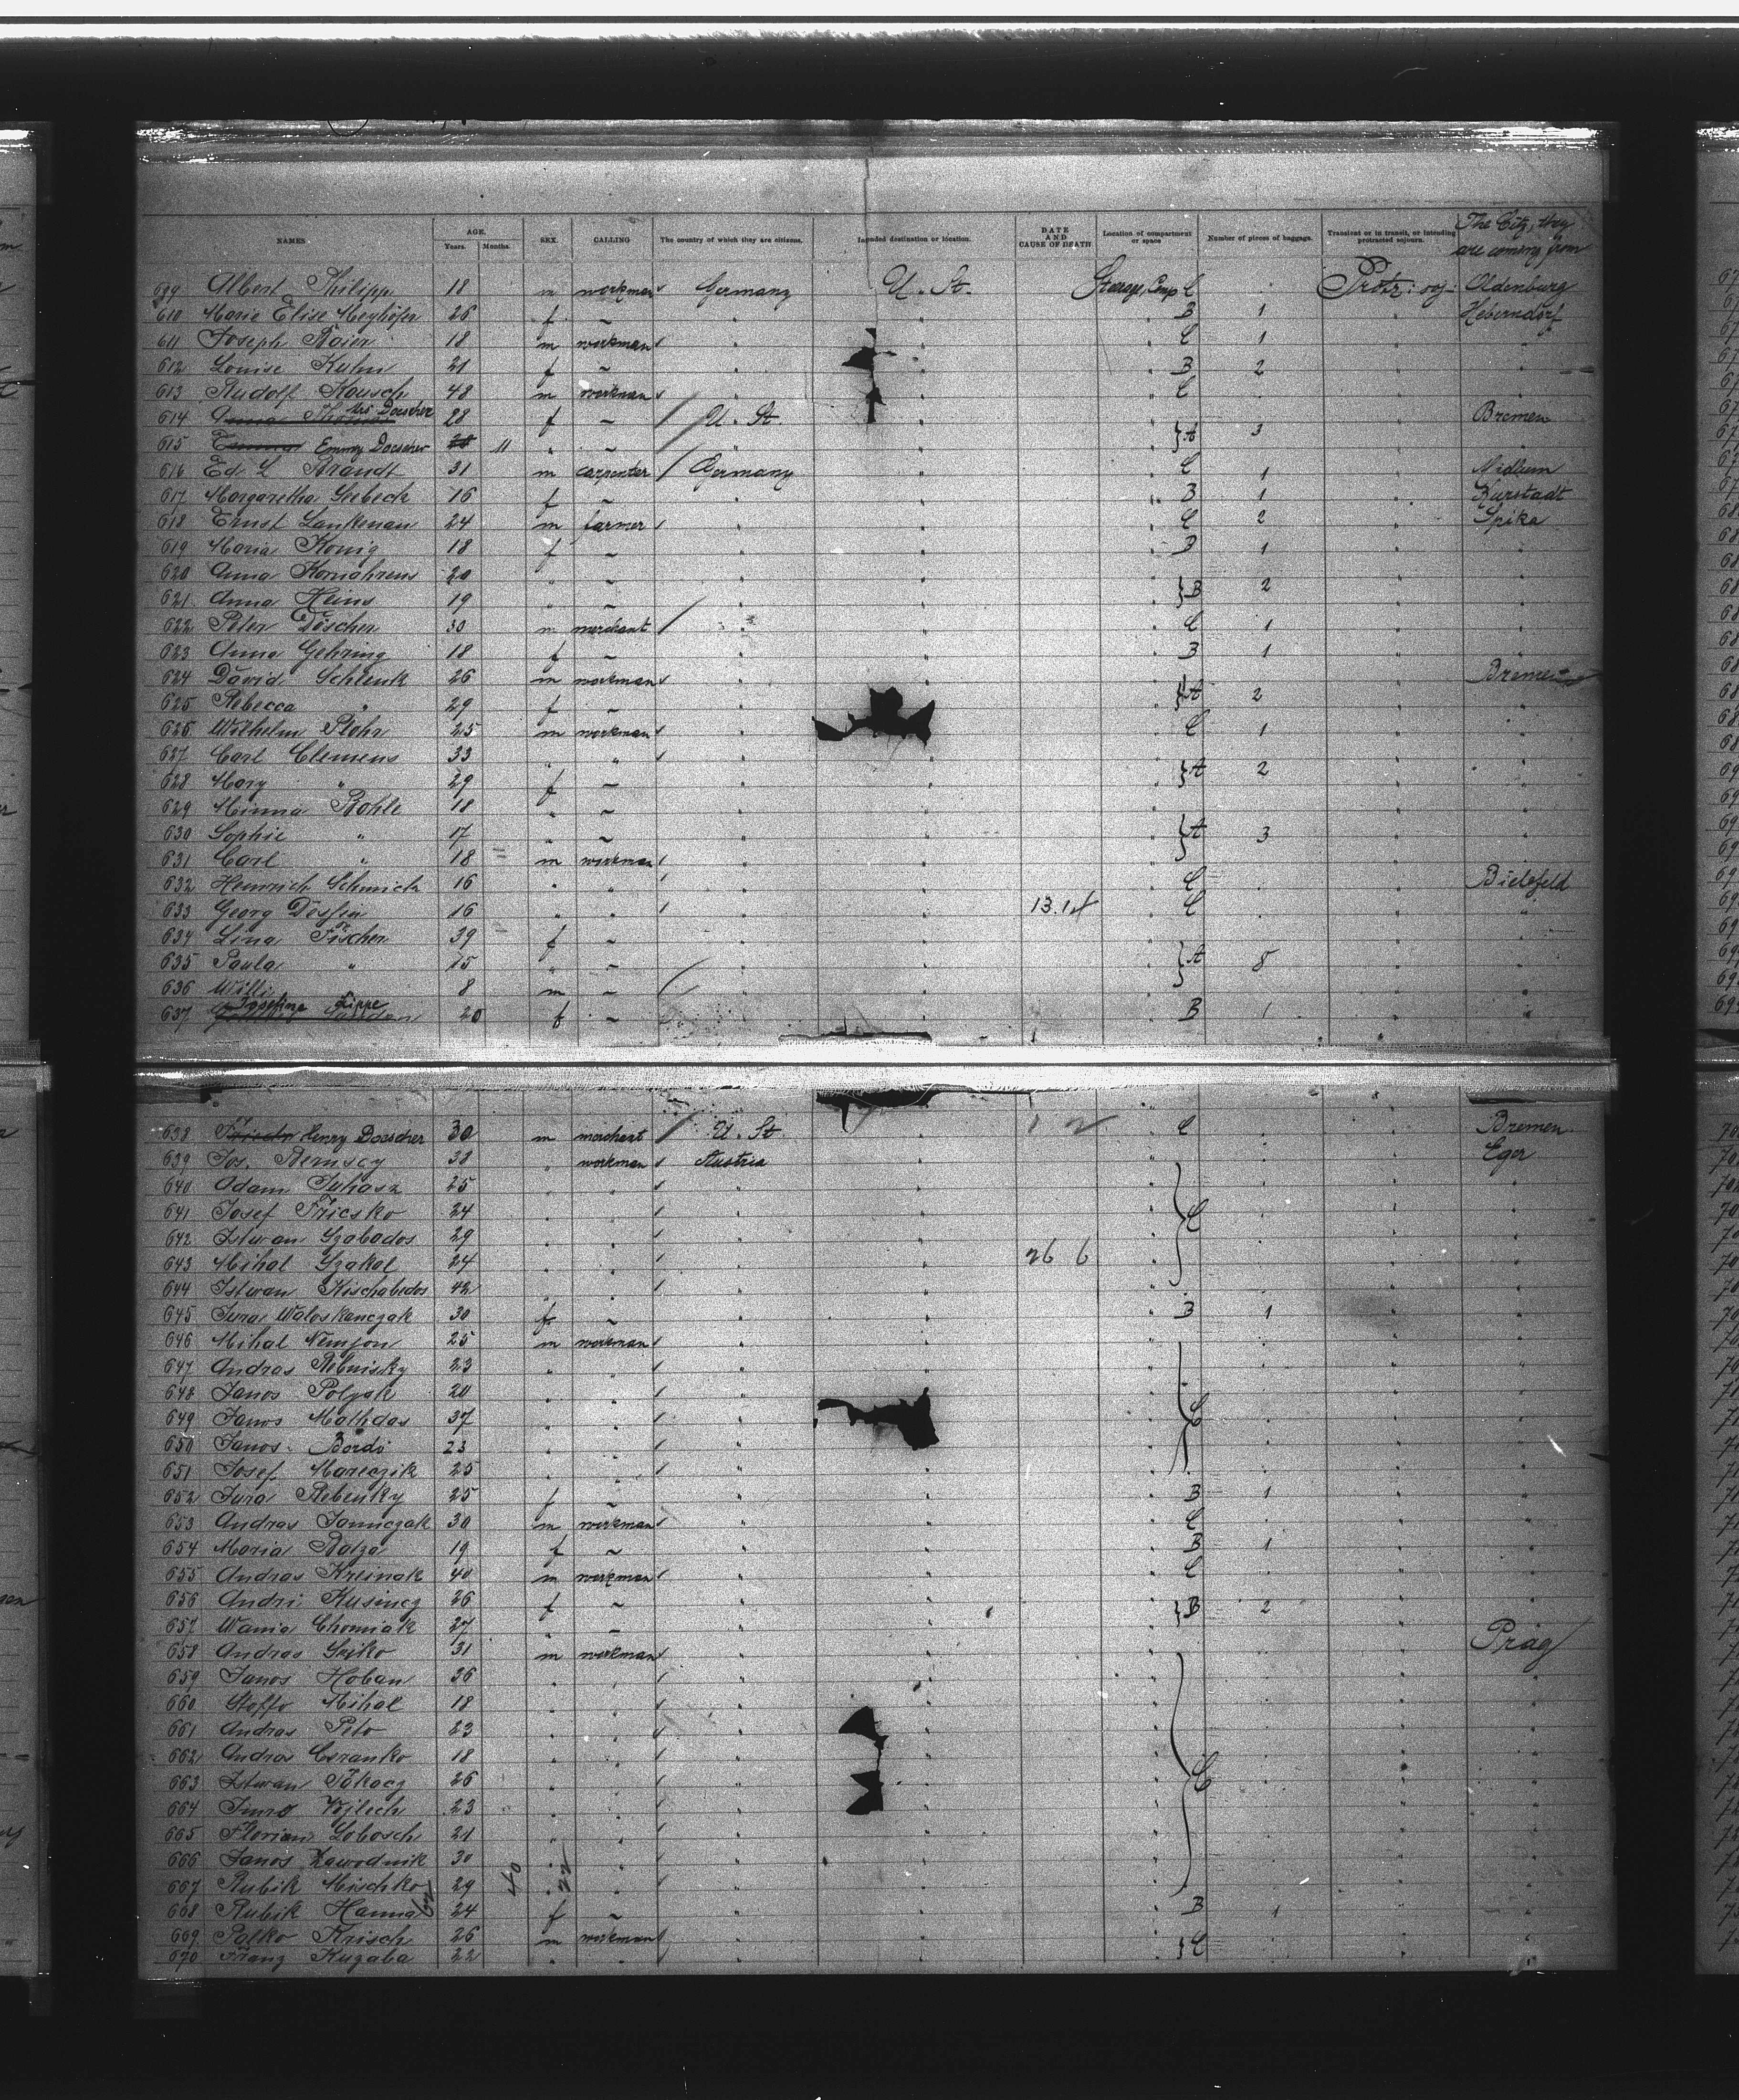 NAMES AGE. Years. Months. SEX. CALLING The country of which they are citizens. Intended destination or location. DATE AND CAUSE OF DEATH Location of compartment or space Number of pieces of baggage. Transient or in transit, or intending protracted sojourn. The City, they are coming from
609 Albert Philipp 18 m workman Germany U. St. Steerage, Comp C Oldenburg
610 Marie Elise Meyhöfer 26 f ~ " " B 1 " Heberndorf
611 Joseph Baier 18 m workman " " C 1 " "
612 Louise Kuhn 21 f ~ " " B 2 " "
613 Rudolf Kausch 48 m workman " C " "
614 Mrs Doescher 28 f ~ U. St. Bremen
615 Emmy Doescher 11 " ~ " " } A 3 " "
616 Ed L Brandt 31 m carpenter Germany " C 1 " Midlum
617 Margaretha Seebeck 16 f ~ " " B 1 "
618 Ernst Lankenau 24 m farmer " " C 2 " Spika
619 Maria König 18 f ~ " " B 1 " "
620 Anna Kornahrens 20 " ~ " " " "
621 Anna Heins 19 " ~ " " } B 2 " "
622 Peter Döscher 30 m merchant " " C 1 " "
623 Anna Gehring 18 f ~ " " B 1 " "
624 David Schlenk 26 m workman " " " Bremen
625 Rebecca " 29 f ~ " } A 2 " "
626 Wilhelm Plohr 25 m workman " C 1 " "
627 Carl Clemens 33 " " " " " "
628 Mary " 29 f ~ " " } A 2 " "
629 Minna Bohle 18 " ~ " " " "
630 Sophie " 17 " ~ " " } A 3 " "
631 Carl " 18 m workman " " " "
632 Heinrich Schmick 16 " " " " C " Bielefeld
633 Georg Dessin 16 " " " " 13.14 C " "
634 Lina Fischer 39 f ~ " " " "
635 Paula " 15 " ~ " " } A 8 " "
636 Willi 8 m ~ " " " "
637 Josefine Lippe 20 f ~ " " B 1 " "
638 Henry Doescher 30 m merchant U. St. " 12 C " Bremen
639 Jos. Bernscy 38 " workman Austria " " Eger
640 Adam Juhasz 25 " " " " " "
641 Josef Fricsko 24 " " " " } C " "
642 Istwan Szabados 29 " " " " " "
643 Mihal Szakal 24 " " " " 26 6 " "
644 Istwan Kischabedos 42 " " " " " "
645 Jura Waloskanczak 30 f ~ " " B 1 " "
646 Mihal Nemjon 25 m workman " " " "
647 Andras Rebnisky 23 " " " " " "
648 Janos Polyak 20 " " " " " "
649 Janos Mathdas 37 " " " } C " "
650 Janos Bordó 23 " " " " "
651 Josef Mareczik 25 " " " " " "
652 Jura Rebenky 25 f ~ " " B 1 " "
653 Andras Janniczak 30 m workman " " C " "
654 Maria Balza 19 f ~ " " B 1 " "
655 Andras Kreinak 40 m workman " " C " "
656 Andri Kusincz 26 f ~ " " } B 2 " "
657 Wania Chomiak 27 " ~ " " "
658 Andras Sziko 31 m workman " " " Prag
659 Janos Hoban 36 " " " " " "
660 Steffo Mihal 18 " " " " " "
661 Andras Peto 23 " " " " " "
662 Andras Czranko 18 " " " " " "
663 Istwan Tökacz 26 " " " " } C " "
664 Juro Vojtech 23 " " " " " "
665 Florian Lobosch 21 " " " " " "
666 Janos Zawodnik 30 " " " " " "
667 Rubik Mischko 29 " " " " " "
668 Rubik Hanna 24 f ~ " " B 1 " "
62 40 22
669 Palko Krisch 26 m workman " " " "
670 Franz Kuzaba 22 " " " " } C " "